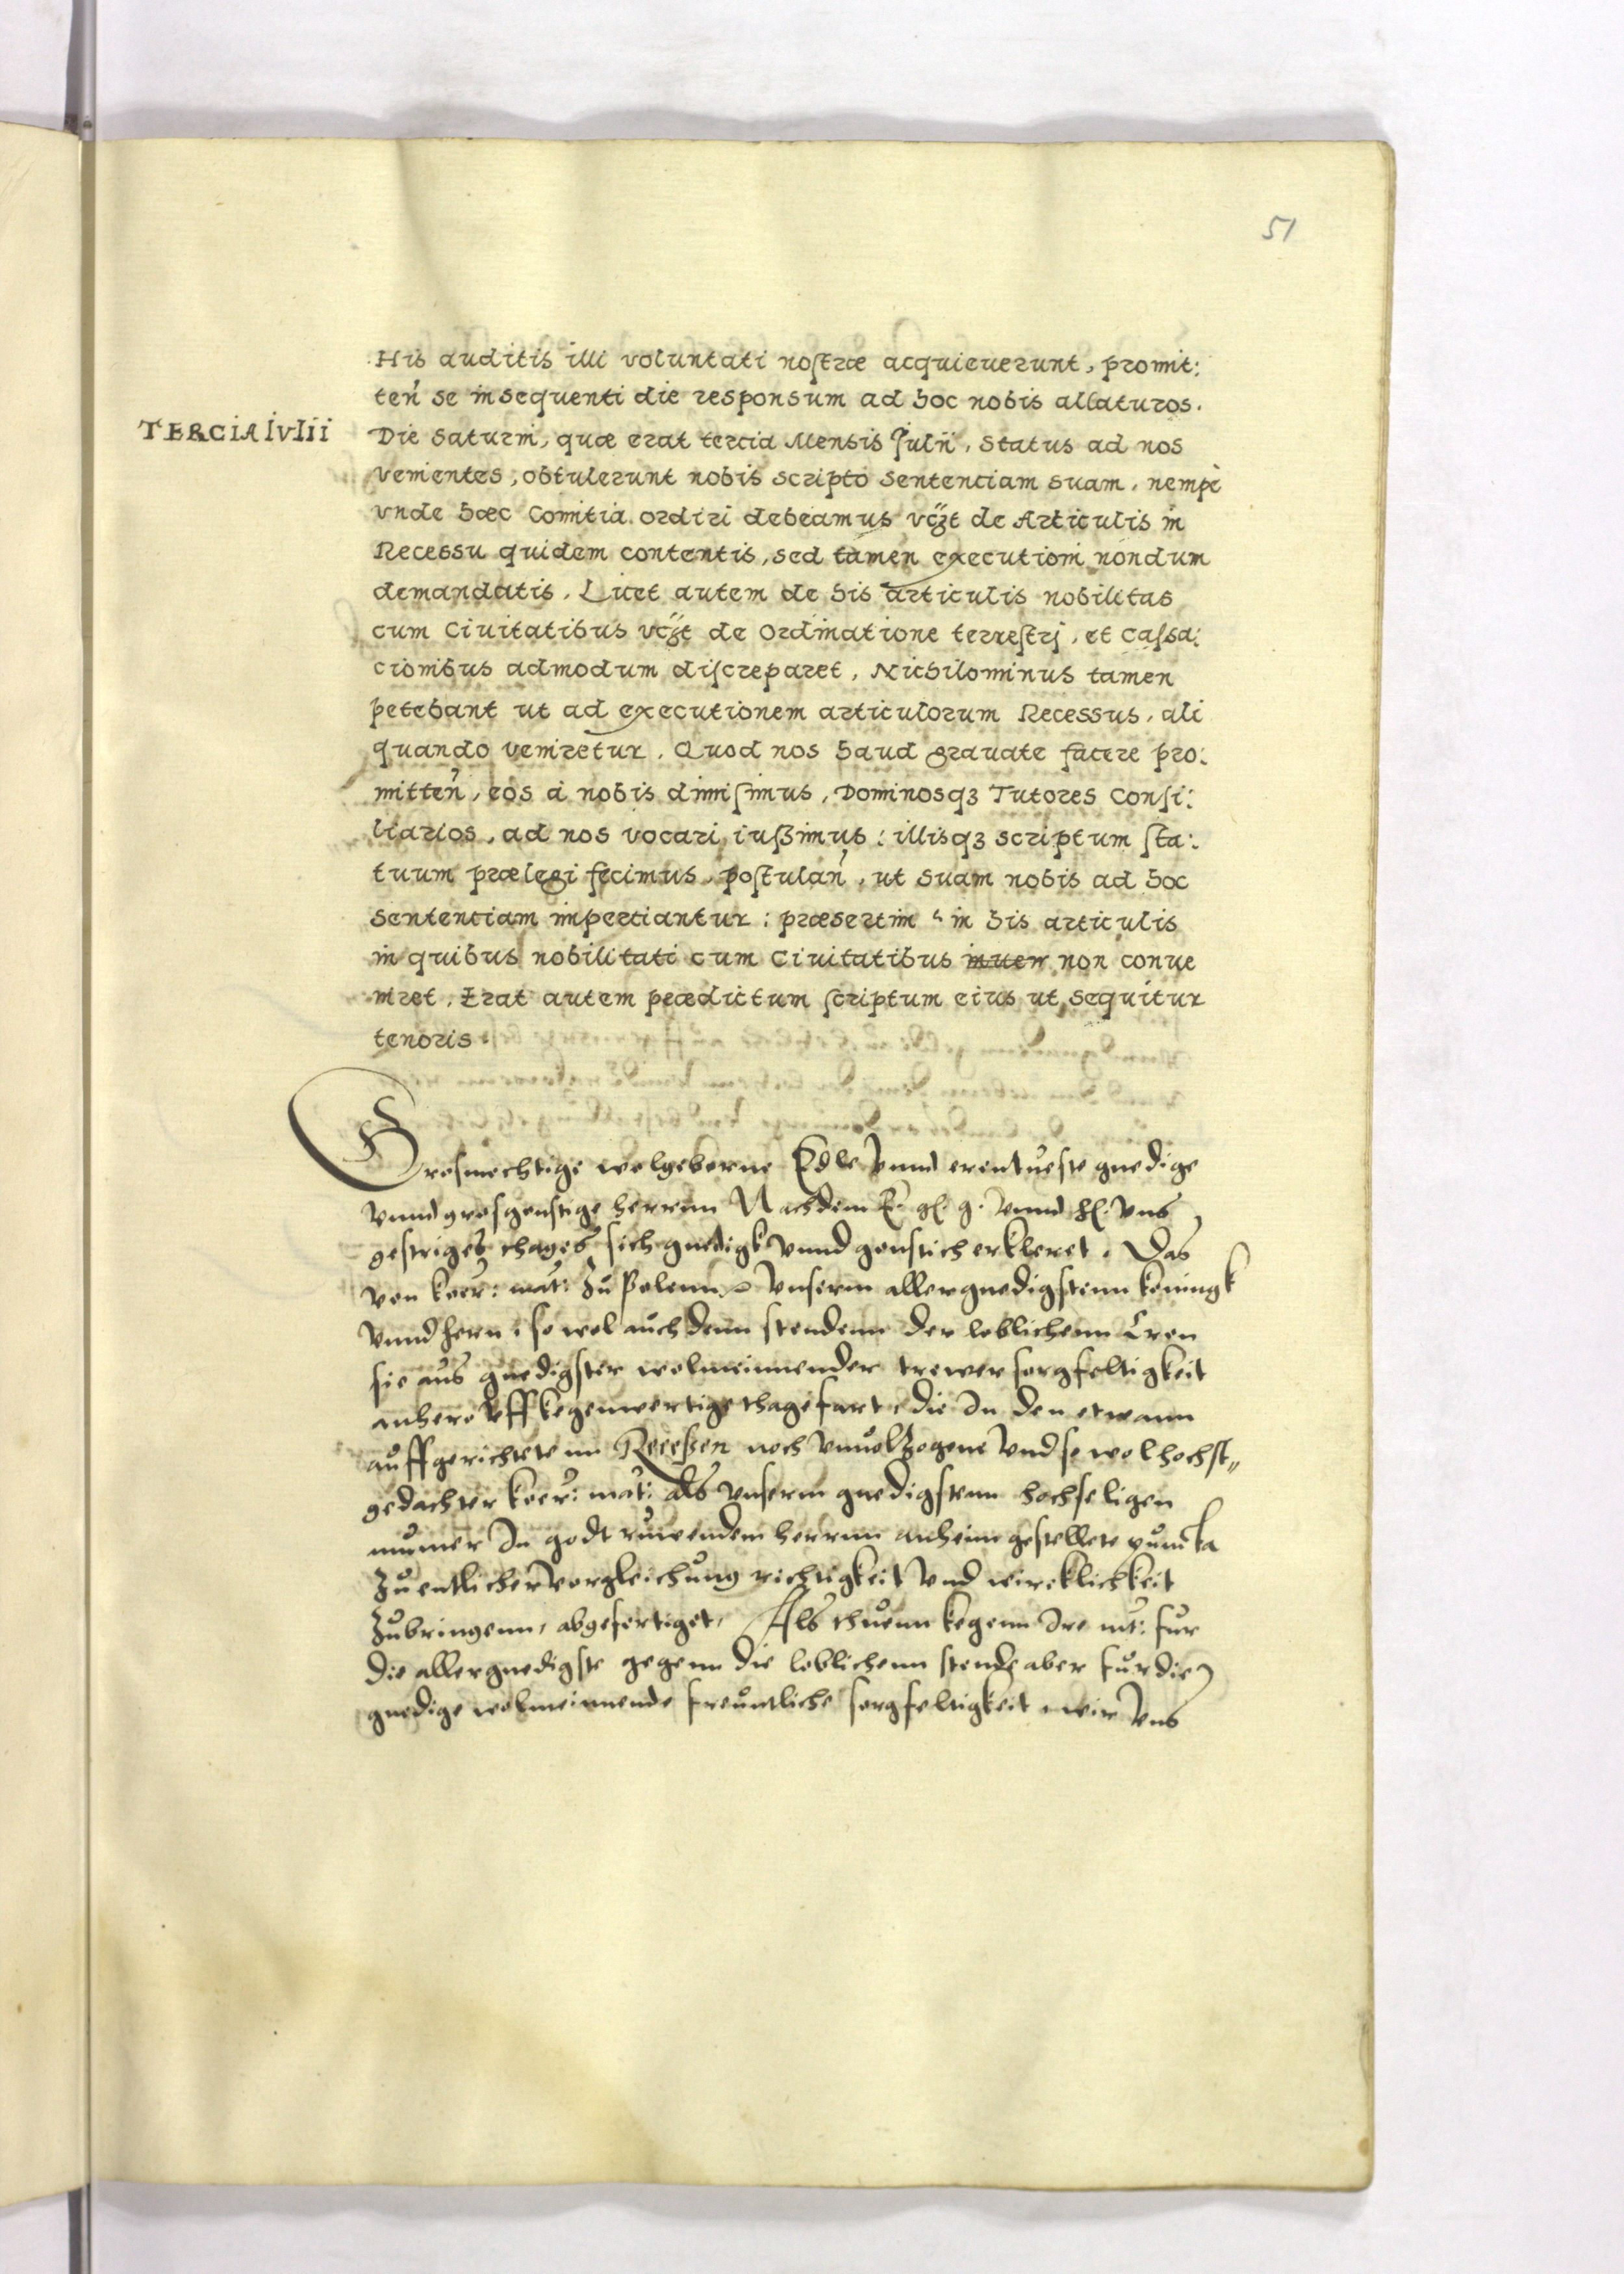 51
His auditis illi voluntati nostræ acquieuerunt, promit:
ten̄ se insequenti die responsum ad hoc nobis allaturos.
TERCIA IVLII
Die Saturni, quæ erat tercia Mensis Julii, Status ad nos
venientes, obtulerunt nobis scripto Sententiam suam, nempe
vnde hæc Comitia ordiri debeamus vcȝt de Articulis in
Recessu quidem contentis, sed tamen executioni nondum
demandatis. Licet autem de his articulis nobilitas
cum Ciuitatibus vcȝt de Ordinatione terrestrj, et Cassa:
cionibus admodum discreparet, Nichilominus tamen
petebant ut ad executionem articulorum Recessus, ali
quando veniretur. Quod nos haud grauate facere pro:
mitten̄, eos à nobis dimisimus, Dominosqȝ Tutores Consi:
liarios, ad nos vocari iußimus: illisqȝ scriptum sta:
tuum prælegi fecimus, postulan̄, ut suam nobis ad hoc
sententiam impertiantur: præsertim in his articulis
in quibus nobilitati cum Ciuitatibus inuen non conue
niret. Erat autem prædictum scriptum eius ut sequitur
tenoris.
Grosmechtige wolgeborne Edle vnnd erentueste gnedige
vnnd grosgonstige herrenn Nachdem E. gl. g. vnnd hl. vns
gestriges thages sich gnedigk vnnd gonstich erkleret, Das
von koer: mat: zu Polenn vnserm allergnedigstenn koningk
vnnd hern, so wol auch denn stendenn der loblichenn Cron
sie aus gnedigster wolmeinnender trewer sorgfeltigkeit
anhero vff kegenwertige thagefart, die In den etwann
auffgerichtetenn Receßen noch vnuolzogene vnd so wol hochst„
gedachter koer: mat: als vnserm gnedigstenn hochseligen
nunmer In godt ruwendem herrnn anheim gestellete puncta
zu entlicher vorgleichung richtigkeit vnd wircklichkeit
zubringenn, abgefertiget, Als thuenn kegenn Ire mt: fur
die allergnedigste gegenn die loblichenn stende aber fur die
gnedige wolmeinnende freuntliche sorgfeltigkeit wir vns